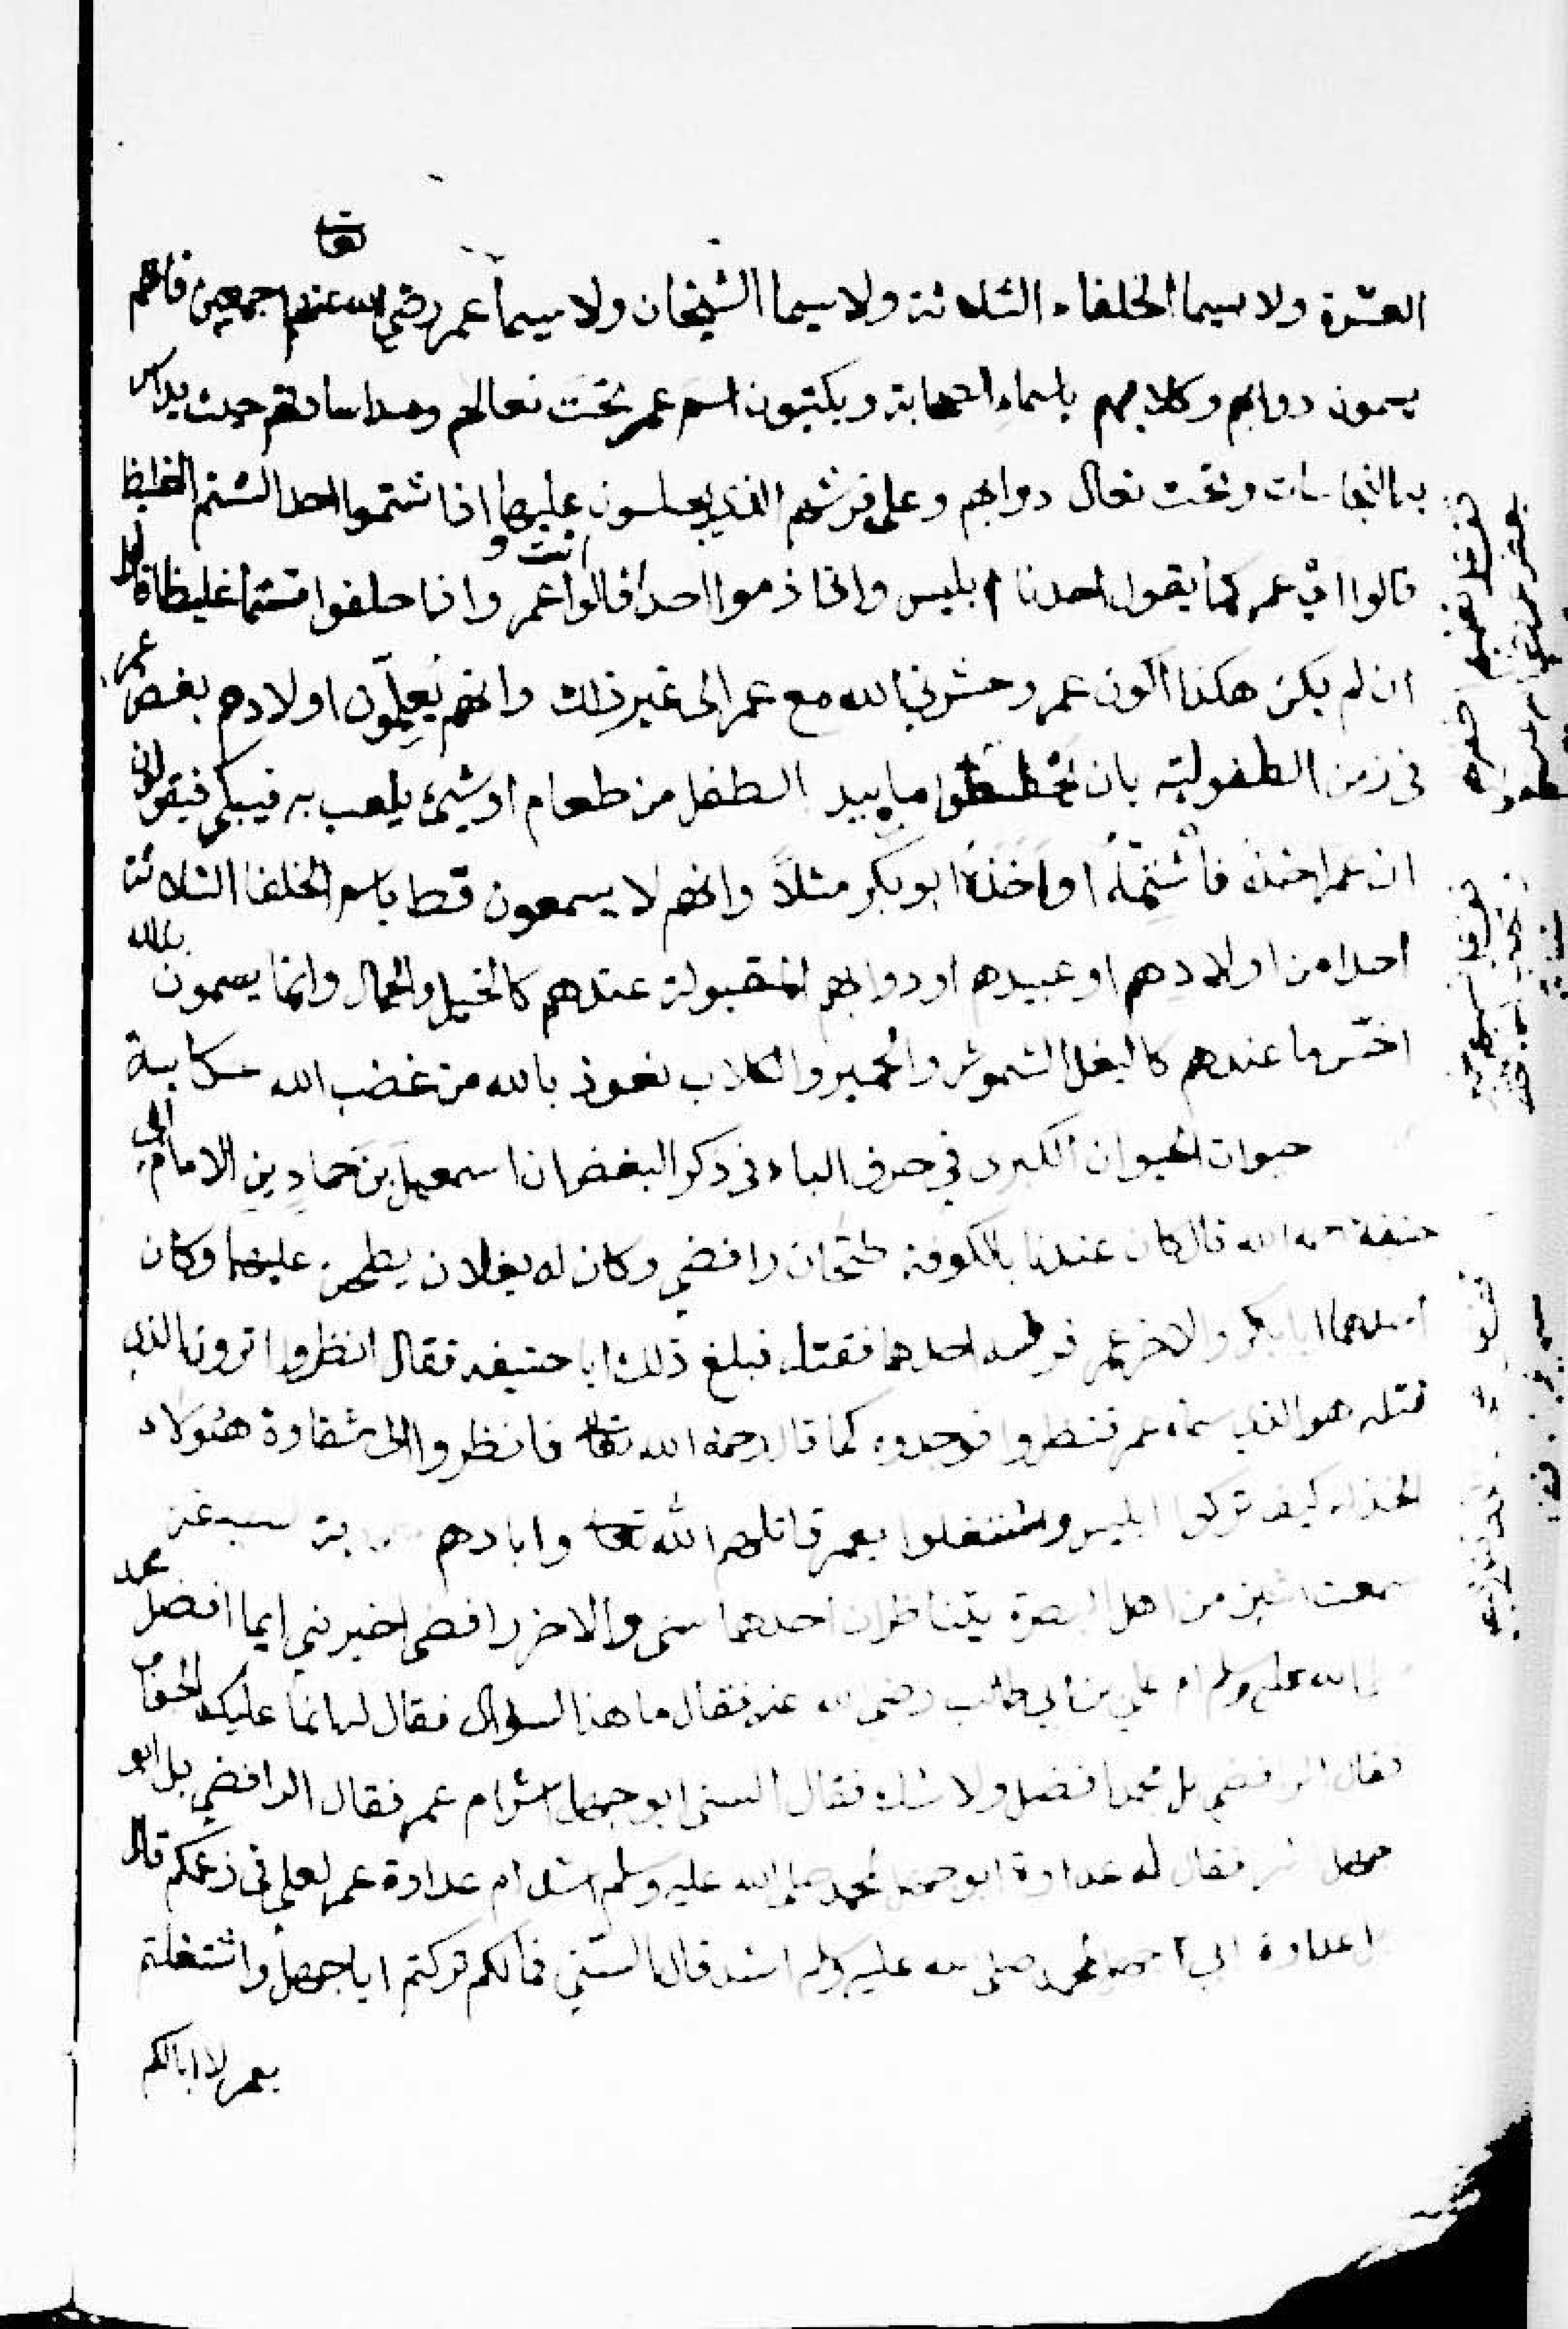 العشرة ولا سيما الخلفاء الثلاثة ولا سيما الشيخان ولا سيما عمر رضي الله تعا عنهم اجمعين فانهم
يسمون دوابهم وكلابهم باسماء الصحابة ويكتبون اسم عمر تحت نعالهم ومداساتهم حيث يداس
بالنجاسات وتحت نعال دوابهم وعلى فرشهم الذي يجلسون عليها واذا شتموا احدا الشتم الغليظ
قالوا انت عمر كما يقول احدنا ابليس واذا ذموا احدا قالوا عمر واذا حلفوا قسما غليظا قالوا
ان لم يكن هكذا اكون عمر وحشرني الله مع عمر الى غير ذلك وانهم يُعلِّمون اولادهم بغض عمر
في زمن الطفولية بان يخطفوا ما بيد الطفل من طعام او شيئ يلعب به فيبكي فيقولون
ان عمر اخذه فأشتِمْهُ او أخَذَهُ ابو بكر مثلاً وانهم لا يسمعون قط باسم الخلفا الثلاثة
احدا من اولادهم او عبيدهم او دوابهم المقبولة عندهم كالخيل والجمال وانما يسمون بذلك
اخسّ ما عندهم كالبغل الشموش والحمير والكلاب نعوذ بالله من غضب الله حكاية
حيوان الحيوان الكبرى في حرف الباء في ذكر البغض ان اسمعيل بن حماد بن الامام ابي
حنيفة رحمه الله قال كان عندنا بالكوفة طحّان رافضي وكان له بغلان يطحن عليهما وكان
احدهما ابا بكر والاخر عمر فرفسه احدهما فقتله فبلغ ذلك ابا حنيفه فقال انظروا ترونا الذي
قتله هو الذي سماه عمر فنظروا فوجدوه كما قال رحمه الله تعا فانظروا الى شقاوة هؤلاء
الخذلة كيف تركوا ابليس واشتغلوا بعمر قاتلهم الله تعا وابادهم
سمعت اثنين من اهل البصرة يتناظران احدهما سني والاخر رافضي اخبرني ايما افضل محمد
صلى الله عليه وسلم ام علي بن ابي طالب رضي الله عنه فقال ما هذا السؤال فقال له انما عليك الجواب
فقال الرافضي بل محمد افضل ولا شك فقال السني ابو جهل اشر ام عمر فقال الرافضي بل ابو
جهل اشر فقال له عداوة ابو جهل لمحمد صلى الله عليه وسلم اشد ام عداوة عمر لعلي في زعمكم قال
عداوة ابي جهل لمحمد صلى الله عليه وسلم اشد قال السني فما لكم تركتم ابا جهل واشتغلتم
بعمر لا ابا لكم